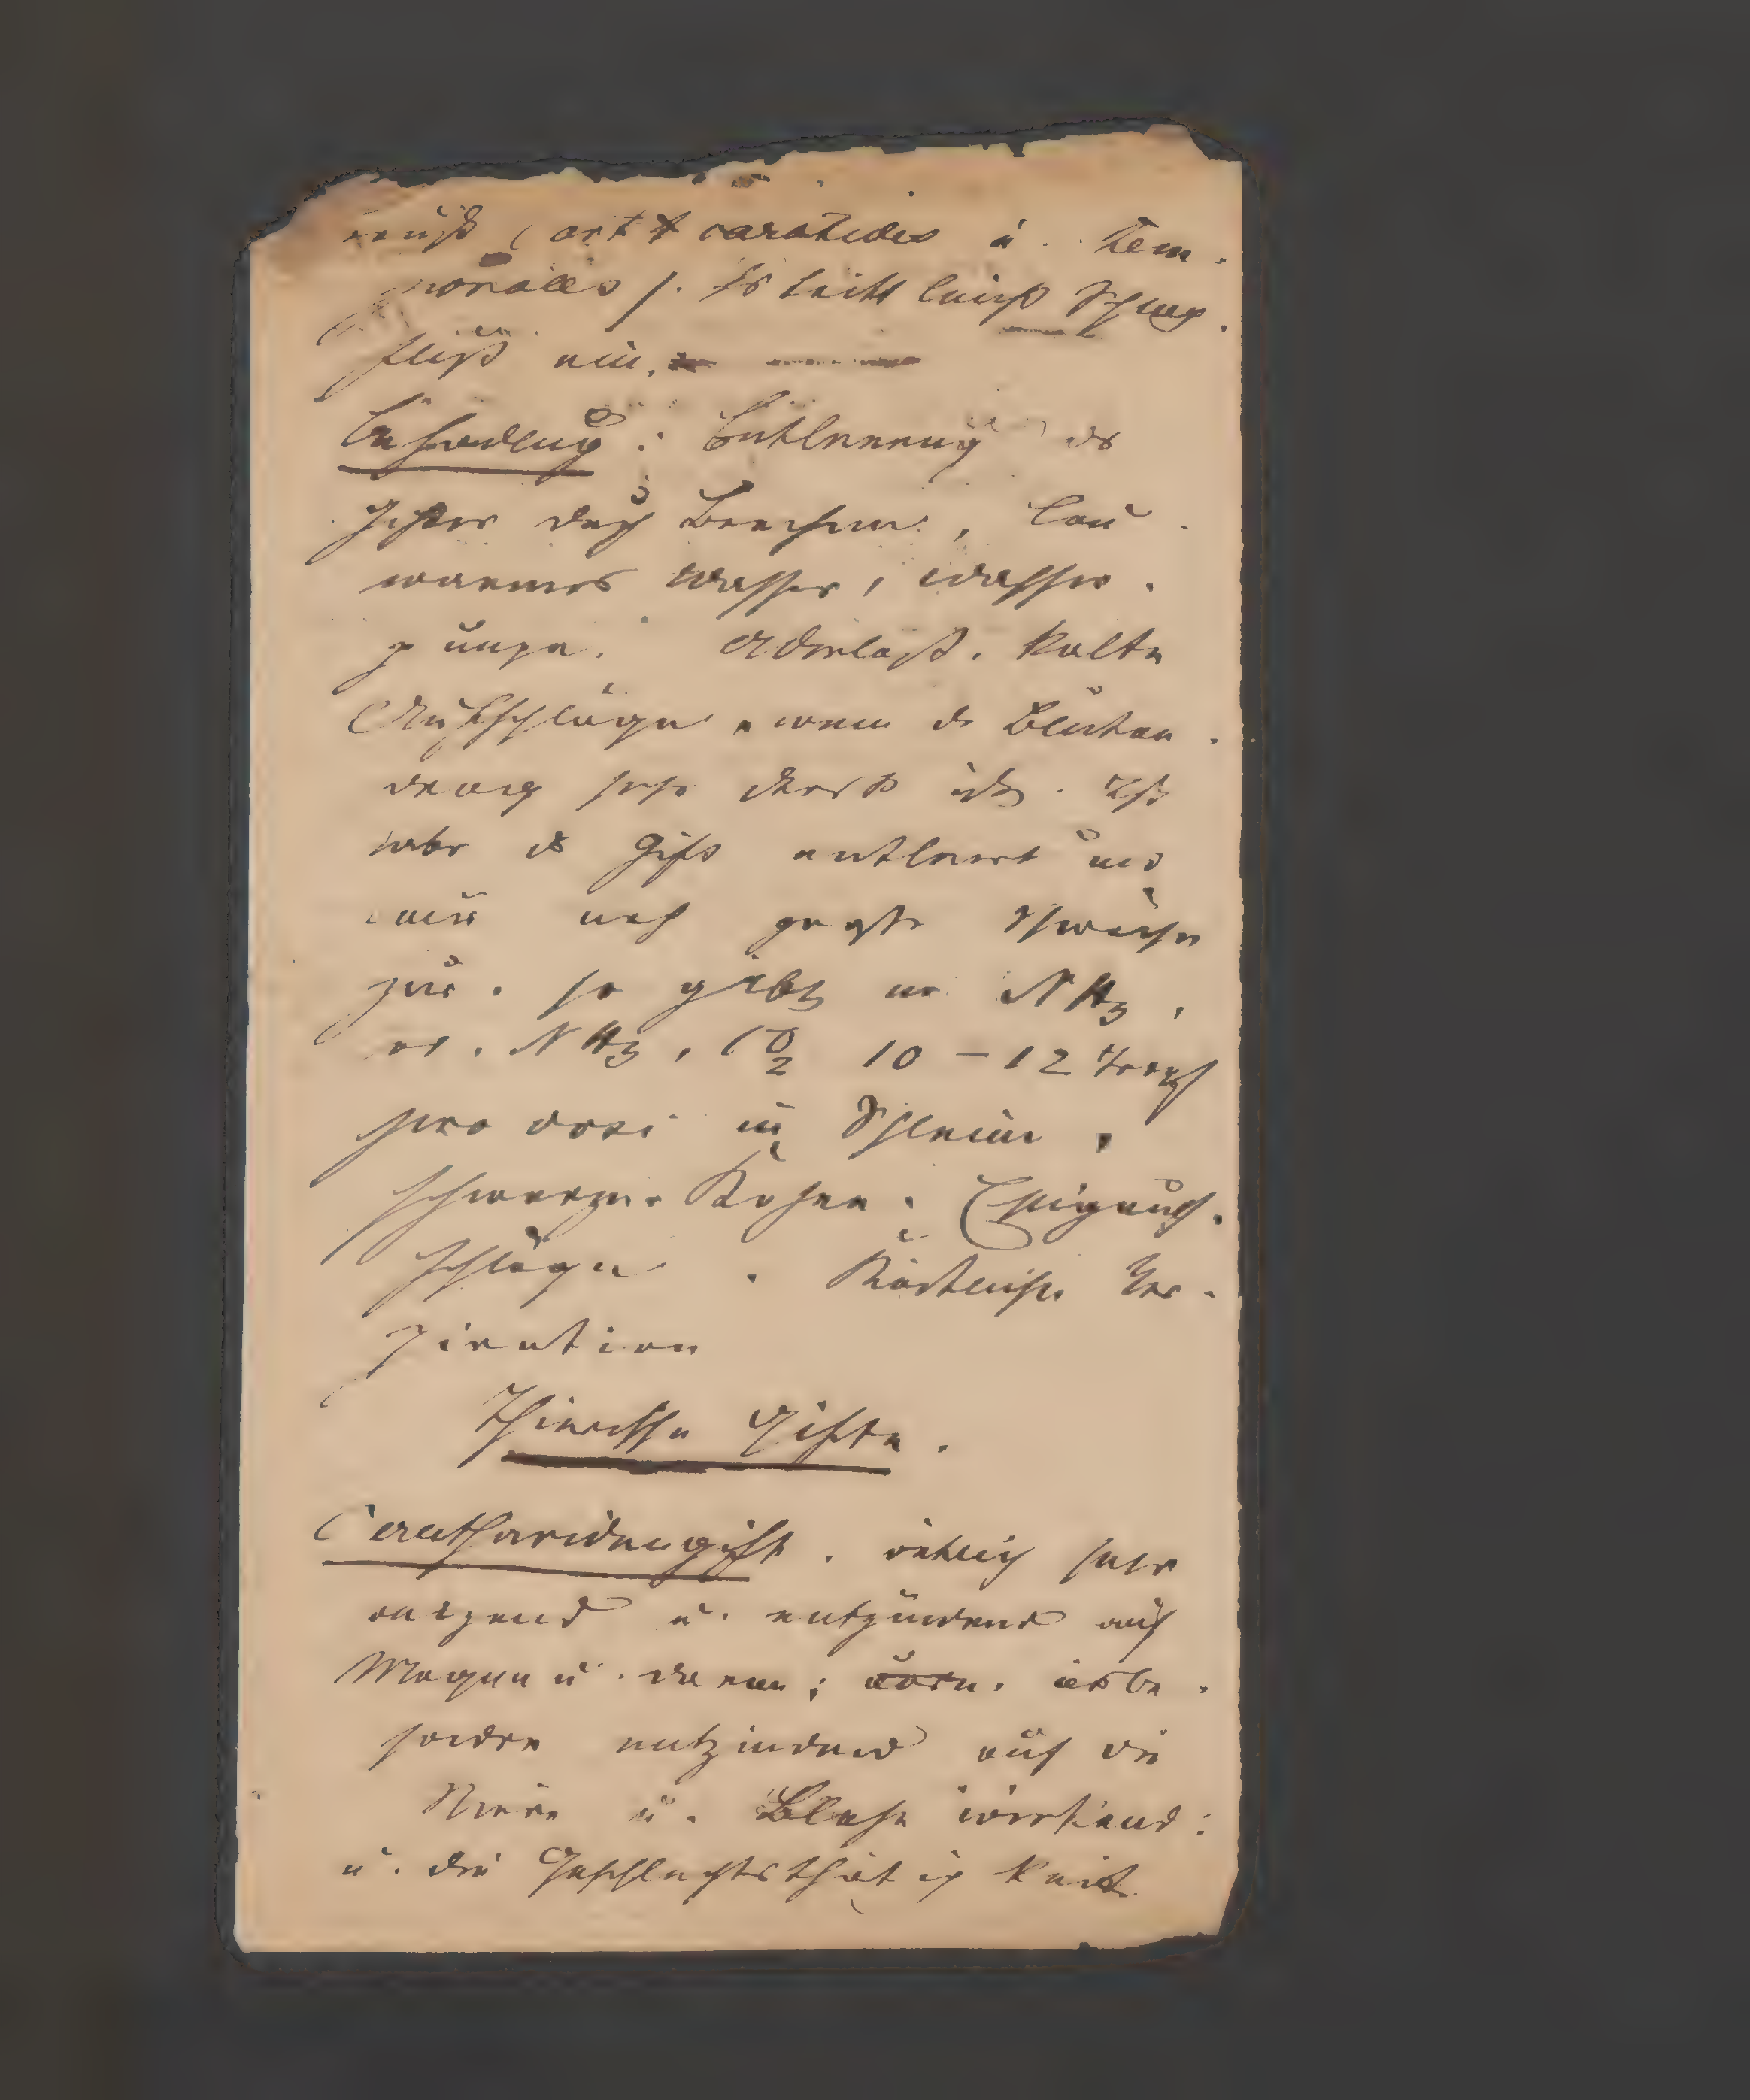 art carotides u. tem-
porales /. Es tritt leicht Schlag-
fluß ein.
Behandlug: Entleerung ds
Giftes durch Brechen, lau-
warmes Wasser,
Aderlaß. Kalte
Aufschläge, wenn d Blutan-
drang sehr stark ist. Ist
aber ds Gift entleert und
nur noch große Schwäche
zur. so gibt m NH3,
od. NH3, CO2 10-12 Tropf
pro dosi in Schleim,
schwarzen Kaffee, Essigauf-
schläge. Künstliche Res-
piration
Thierische Gifte.
Cantharidengift. wirkt sehr
reizend u. entzündend auf
Magen u. Darm; insbe-
sondre entzündend auf die
Niere u. Blase wirkend:
u. die Geschlechtsthätigkeit